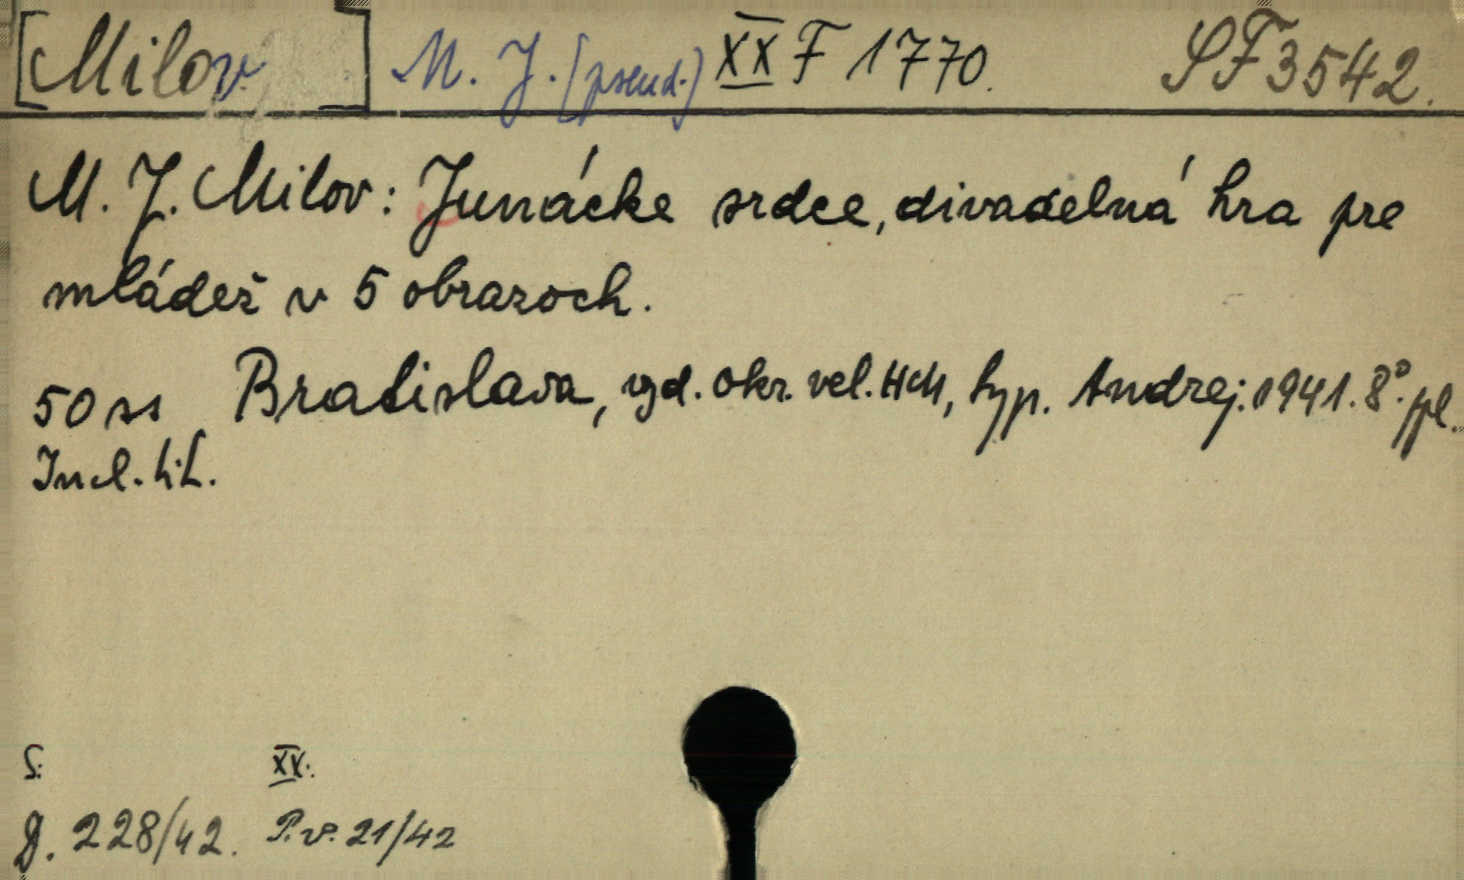 [Milov] M. J. (pseud.) XX F 1770. SF 3542.
M. J. Milov: Junácke srdce, divadelná hra pre
mládež v 5 obrazoch.
50 ss Bratislava, vyd. okr. vel. HM, typ. Andrej. 1941. 8°. ppl.
Incl. tit.
S. XX.
D. 228/42. P.v. 21/42